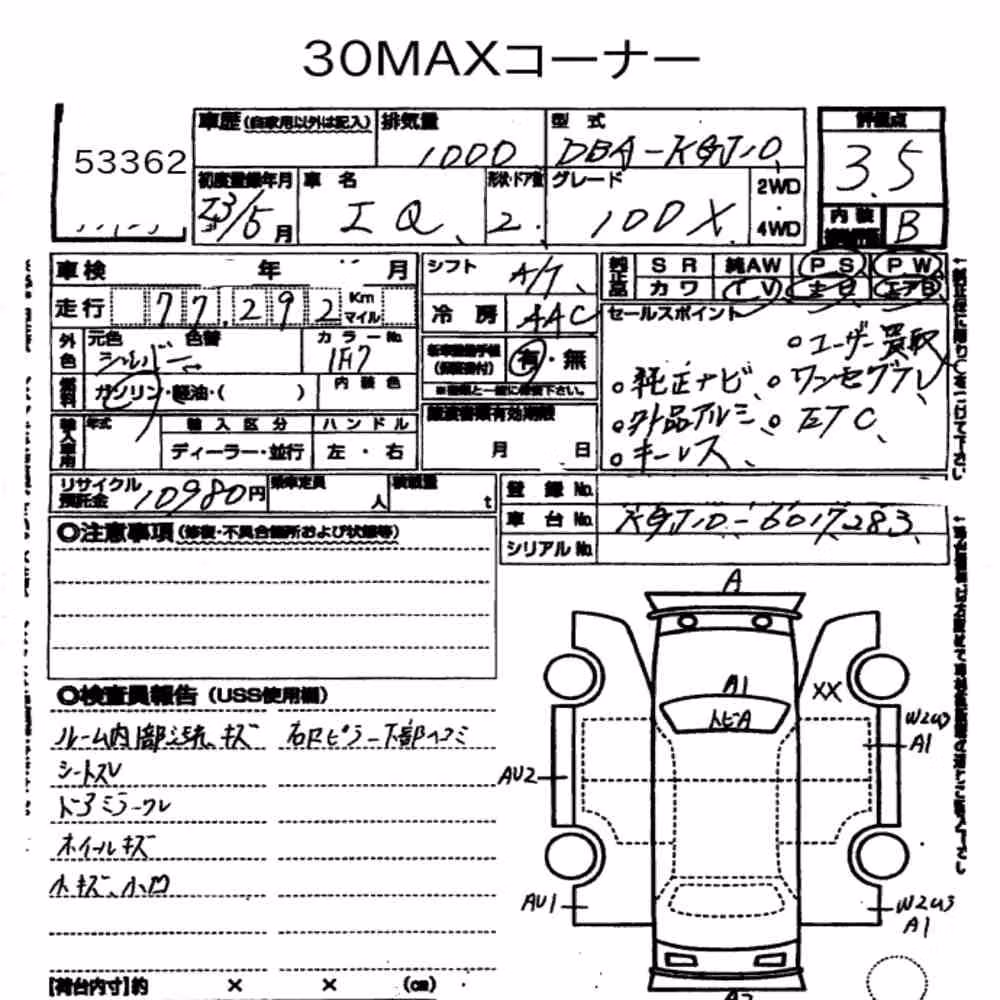 30MAXコーナー
53362
車歴 (自家用以外は記入)
排気量
1000
型式
DBA-KGJ10
評価点
3.5
初度登録年月
車名
IQ
形状・ドア数
2
グレード
100X
2WD
・
4WD
内装
B
車検 年 月
走行 77,292 Km マイル
シフト A/T
冷房 AAC
純正品
SR 純AW PS PW
カワ TV エアB
外色
元色 色替
シルバー
カラーNo.
1F7
燃料
ガソリン・軽油・( )
内装色
輸入車用
年式
輸入区分
ハンドル
ディーラー・並行
左・右
有・無
月 日
セールスポイント
○ユーザー買取
○純正ナビ、○ワンセグTV
○外品アルミ、○ETC、
○キーレス、
リサイクル預託金 10980円
乗車定員 人
積載量 t
登録No.
車台No. KGJ10-6017283
シリアルNo.
◎注意事項 (修復・不具合箇所および状態等)
◎検査員報告 (USS使用欄)
ルーム内部汚れ、キズ
右ロピラー下部ヘコミ
シートスレ
ドアミラーワレ
ホイールキズ
小キズ、小凹
[荷台内寸]約 × × (cm)
A
A1
トビA
XX
W2U3
A1
AU2
AU1
W2U3
A1
A2